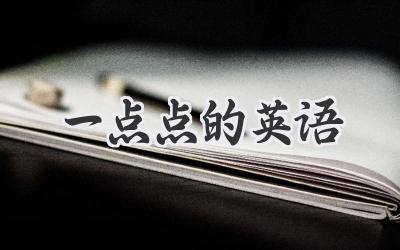 一点点的英语